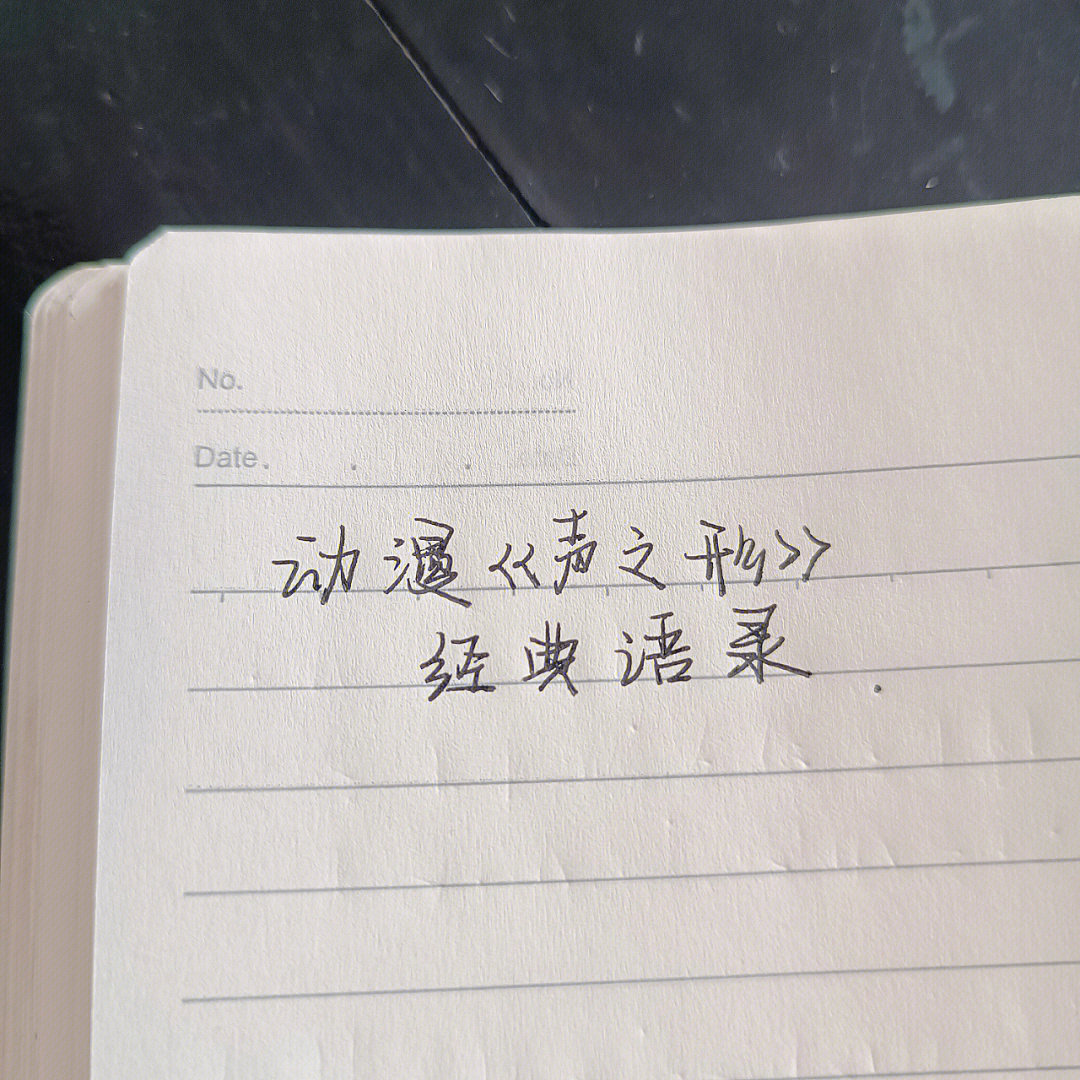 No.
Date. . .
动漫《声之形》
经典语录.